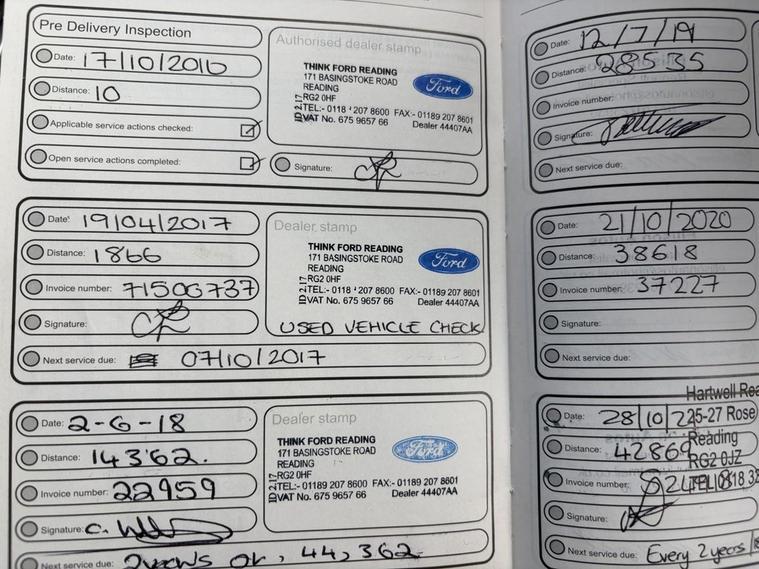 Pre Delivery Inspection
Date: 17/10/2016
Distance: 10
Applicable service actions checked:
Open service actions completed:
Authorised dealer stamp
THINK FORD READING
171 BASINGSTOKE ROAD
READING
RG2 0HF
TEL:- 0118 207 8600 FAX:- 01189 207 8601
VAT No. 675 9657 66 Dealer 44407AA
Ford
Signature:
Date: 19/04/2017
Distance: 1866
Invoice number: 71500737
Signature:
Dealer stamp
THINK FORD READING
171 BASINGSTOKE ROAD
READING
RG2 0HF
TEL:- 0118 207 8600 FAX:- 01189 207 8601
VAT No. 675 9657 66 Dealer 44407AA
Ford
USED VEHICLE CHECK
Next service due: 07/10/2017
Date: 2-6-18
Distance: 14362.
Invoice number: 22959
Signature:
Dealer stamp
THINK FORD READING
171 BASINGSTOKE ROAD
READING
RG2 0HF
TEL:- 01189 207 8600 FAX:- 01189 207 8601
VAT No. 675 9657 66 Dealer 44407AA
Ford
Next service due: 2years or, 44,362
Date: 12/7/19
Distance: 28535
Invoice number:
Signature:
Next service due:
Date: 21/10/2020
Distance: 38618
Invoice number: 37227
Signature:
Next service due:
Hartwell Rea
Date: 28/10/22
25-27 Rose
Distance: 42869
Reading
RG2 0JZ
Invoice number:
Signature:
Next service due: Every 2 years